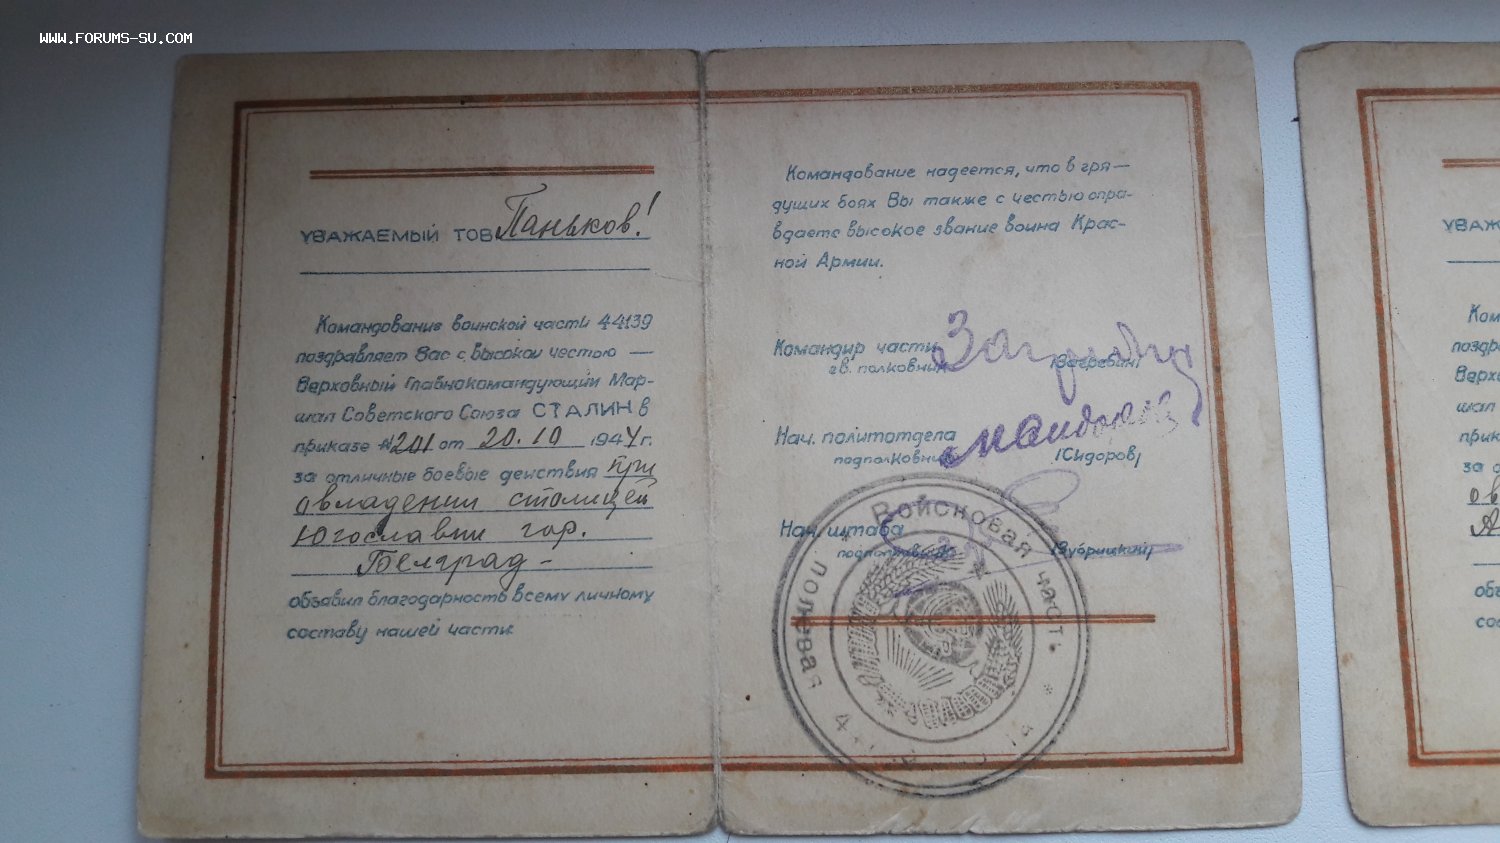 WWW.FORUMS-SU.COM
УВАЖАЕМЫЙ ТОВ Паньков!
Командование воинской части 44139
поздравляет Вас с высокой честью —
Верховный Главнокомандующий Мар-
шал Советского Союза СТАЛИН в
приказе №201 от 20.10 1944 г.
за отличные боевые действия при
овладении столицей
Югославии гор.
Белград-
объявил благодарность всему личному
составу нашей части.
Командование надеется, что в гря—
дущих боях Вы также с честью опра-
вдаете высокое звание воина Крас-
ной Армии.
Командир части
гв. полковник
Нач. политотдела
подполковник /Сидоров/
Нач. штаба
Войсковая часть
полевая
УВАЖ
Ком
поздра
Верх
шал
прик
за о
ов
А
объ
сос